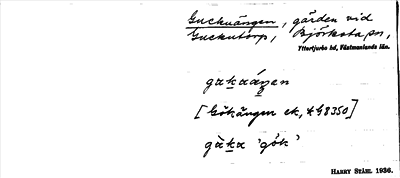 Guckuängen, gärden vid
Guckutorp, Björksta sn,
Yttertjurbo hd, Västmanlands län.
gaka
[Gökängen ek, 48350]
gàka 'gök'
HARRY STÅHL 1936.